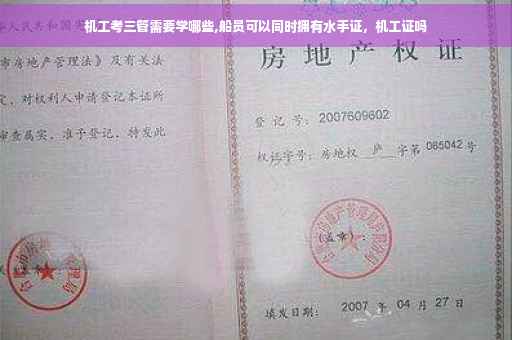 机工考三管需要学哪些,船员可以同时拥有水手证，机工证吗
华人民共和国宪
市房地产管理法》及有关法
定，对权利人申请登记本证所
审查属实，准予登记，特发此
房地产权证
登 记 号：2007609602
权证字号：房地权 庐 字第 065042 号
(盖章)：
填发日期： 2007 年 04 月 27 日